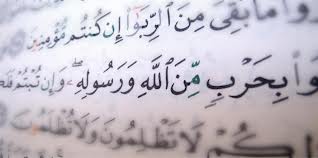 وَمَا بَقِىَ مِنَ ٱلرِّبَوٰٓا۟ إِن كُنتُم مُّؤْمِنِينَ
بِحَرْبٍ مِّنَ ٱللَّهِ وَرَسُولِهِۦ ۖ وَإِن تُبْتُمْ
لَا تَظْلِمُونَ وَلَا تُظْلَمُونَ